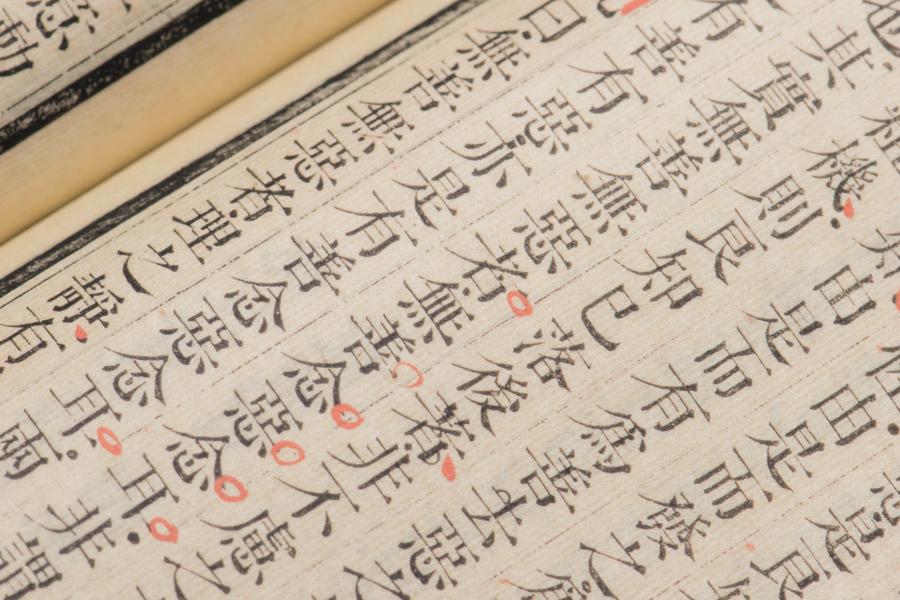 是良
由是而發之
知由是而有為善去惡之
機則良知已落後著非不慮之
其實無善無惡若無善念惡念耳非謂
有善有惡亦是有善念惡念耳兩
曰無善無惡者理之靜有
動